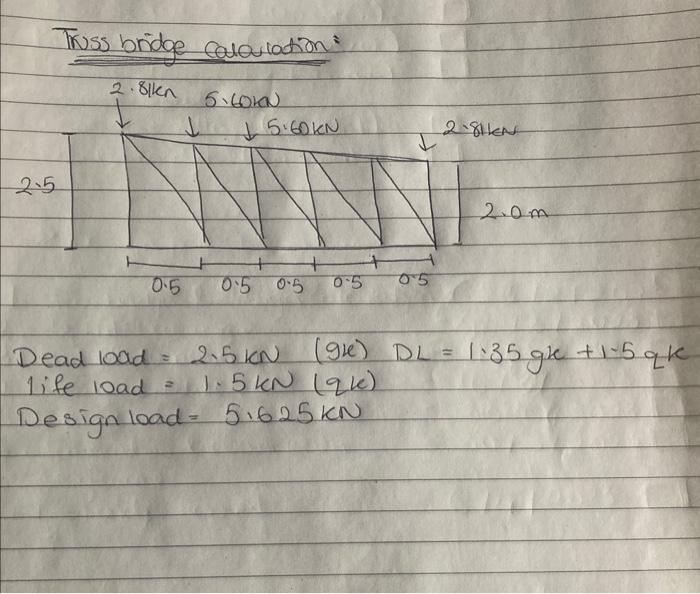 Truss bridge calculation:
2.81kn 5.60kN
5.60kN 2.81kN
2.5
2.0m
0.5 0.5 0.5 0.5 0.5
Dead load = 2.5kN (gk) DL = 1.35gk + 1.5qk
life load = 1.5kN (qk)
Design load = 5.625kN